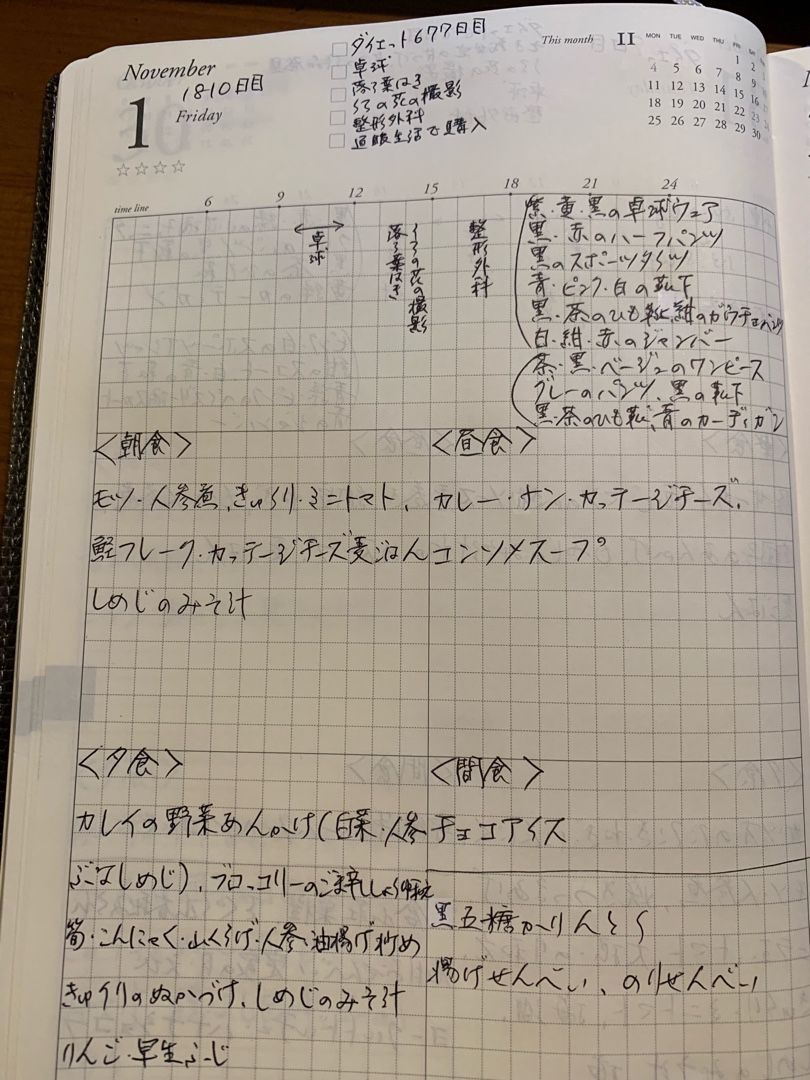 November
1
1810日目
Friday
☆☆☆☆
□ ダイエット677日目
□ 卓球
□ 落ち葉はき
□ くろの花の撮影
□ 整形外科
□ 通販生活で購入
This month 11
MON TUE WED THU FRI
1 2
4 5 6 7 8 9
11 12 13 14 15 16
18 19 20 21 22 23
25 26 27 28 29 30
time line 6 9 12 15 18 21 24
卓球
落ち葉はき
くろの花の撮影
整形外科
紫・黄・黒の卓球ウェア
黒・赤のハーフパンツ
黒のスポーツタイツ
青・ピンク・白の靴下
黒・茶のひも靴、紺のガウチョパンツ
白・紺・赤のジャンバー
茶・黒・ベージュのワンピース
グレーのパンツ、黒の靴下
黒・茶のひも靴、青のカーディガン
<朝食>
モツ・人参煮、きゅうり・ミニトマト、
鮭フレーク・カッテージチーズ麦ごはん
しめじのみそ汁
<昼食>
カレー・ナン・カッテージチーズ、
コンソメスープ
<夕食>
カレイの野菜あんかけ(白菜・人参
ぶなしめじ)、ブロッコリーのごま辛しょうゆ和え
筍・こんにゃく・山くらげ・人参・油揚げ炒め
きゅうりのぬかづけ、しめじのみそ汁
りんご・早生ふじ
<間食>
チョコアイス
黒五糖かりんとう
揚げせんべい、のりせんべい